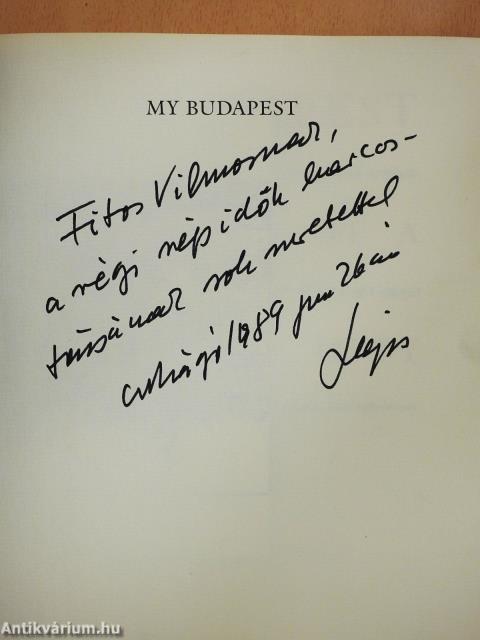 MY BUDAPEST
Fitos Vilmosnak,
a régi szép idők harcos-
társának sok szeretettel
1989 jun 26án
Lajos
Antikvárium.hu